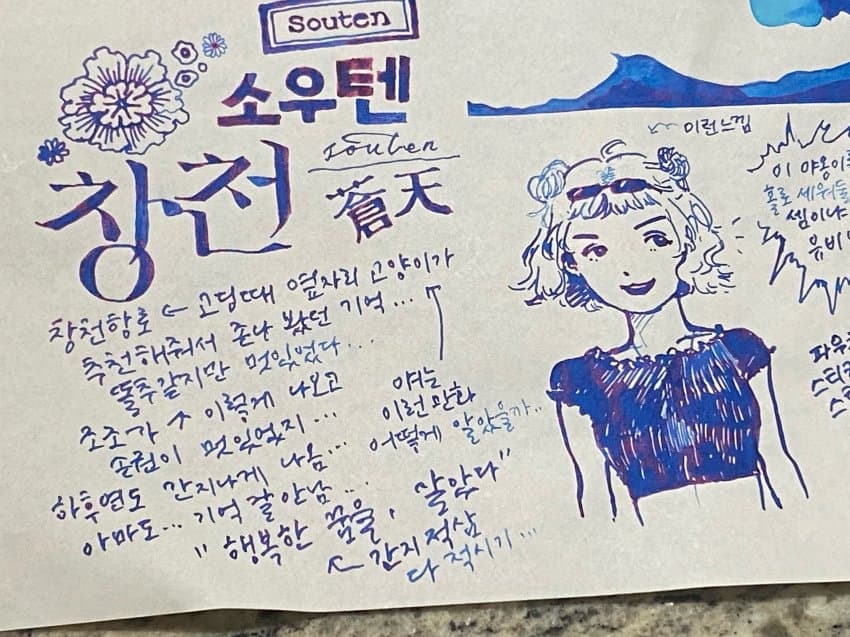 Souten
소우텐
souten
창천
蒼天
이런느낌
이 야옹이를
홀로 세워둘
셈이냐
유비
창천항로 ← 고딩때 옆자리 고양이가
추천해줘서 존나 봤던 기억...
똘추같지만 멋있었다...
조조가 ↑ 이렇게 나오고
손권이 멋있었지...
하후연도 간지나게 나옴...
아마도... 기억 잘 안남...
"행복한 꿈을, 살았다"
← 간지적삼
다 적시기...
야는
이런 만화
어떻게 알았을까..
파우
스티
스